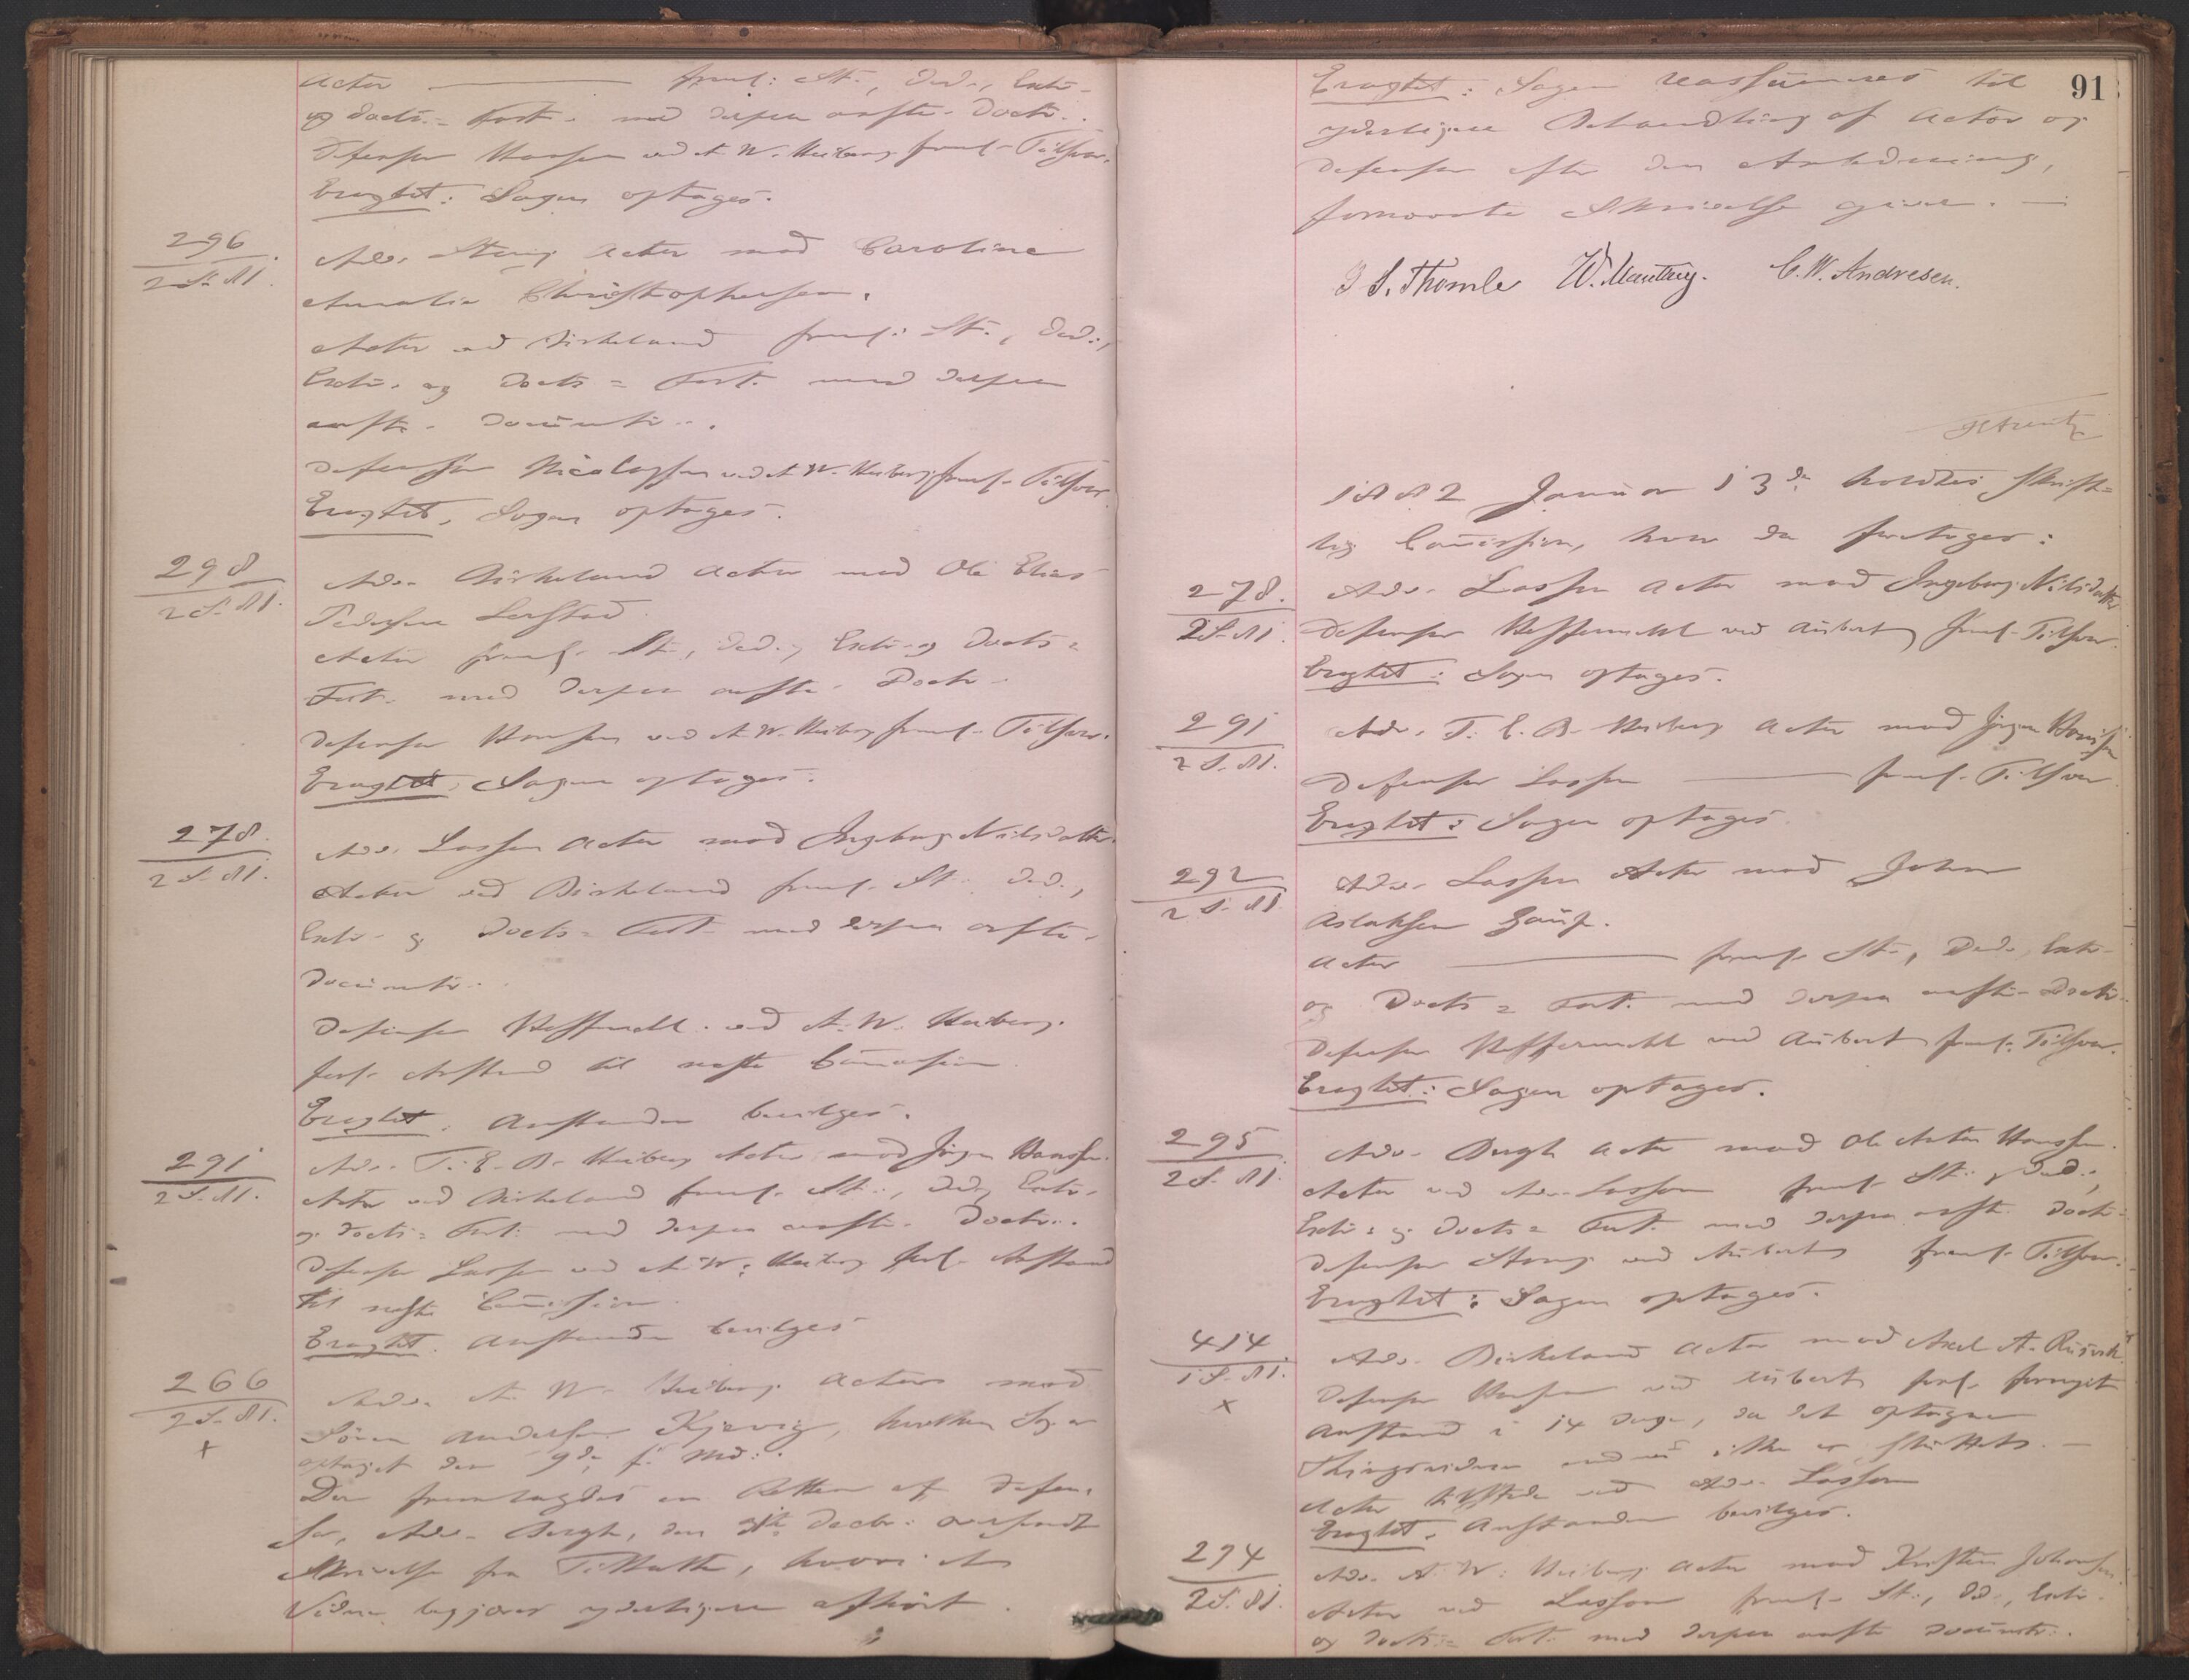 Actor ——— freml: St., Ded., Extr.
og Docts.= Fort. med derpaa anfte. Doctr.
Defensor Hansen ved A. W. Heiberg freml. Tilsvar.
Eragtet: Sagen optages.
296
2 S. 81.
Adv. Steng Actor mod Caroline
Amalie Christophersen.
Actor ved Birkeland freml: St., Ded.,
Extr. og Docts= Fort. med derpaa
anfte. Documtr.
Defensor Nicolaysen ved A. W. Heiberg freml. Tilsvar.
Eragtet, Sagen optages.
298
2 S. 81.
Adv. Birkeland Actor mod Ole Elias
Pedersen
Actor freml. St., Ded., Extr. og Docts=
Fort. med derpaa anfte. Doctr.
Defensor Hansen ved A. W. Heiberg freml. Tilsvar.
Eragtet, Sagen optages.
278.
2 S. 81.
Adv. Lasson Actor mod Ingeborg Nilsdatter.
Actor ved Birkeland freml. St., Ded.,
Extr. og Docts= Fort. med derpaa anfte.
Documtr.
Defensor ved A. W. Heiberg.
forl. Anstand til næste Comission
Eragtet. Anstanden bevilges.
291
2 S. 81.
Adv. T. E. B. Heiberg Actor mod Jörgen Hansen.
Actor ved Birkeland freml. St., Ded., Extr.
og Docts= Fort. med derpaa anfte. Doctr.
Defensor Lasson ved A. W. Heiberg forl. Anstand
til næste Comission.
Eragtet. Anstanden bevilges
266
2 S. 81.
x
Adv. A. W. Heiberg Actor mod
Sören Andersen Kjærvig, hvilken Sag er
optaget den 9de f. Md.
Der fremlagdes en Retten af Defen-
sor, Adv. Bergh, den Decbr. oversendt
Skrivelse fra Tiltalte, hvori et
Vidne begjæres yderligere afhørt.
91
Eragtet: Sagen reassumeres til
yderligere Behandling af Actor og
Defensor efter den Anledning,
fornævnte Skrivelse giver. —
I S. Thomle W. C. W. Andresen.
1882 Januar 13de holdtes skrift-
lig Comission, hvor da foretoges:
278.
2 S. 81.
Adv. Lasson Actor mod Ingeborg Nilsdatter
Defensor ved Aubert freml. Tilsvar.
Eragtet: Sagen optages.
291
2 S. 81.
Adv. T. E. B. Heiberg Actor mod Jörgen Hansen
Defensor Lasson ——— freml. Tilsvar
Eragtet: Sagen optages.
292
2 S. 81
Adv. Lasson Actor mod Johan
Aslaksen
Actor ——— freml. St., Ded., Extr.
og Docts= Fort. med derpaa anfte. Doctr.
Defensor ved Aubert freml. Tilsvar.
Eragtet: Sagen optages.
295
2 S. 81.
Adv. Bergh Actor mod Ole Anton Hansen.
Actor ved Adv. Lasson freml. St., Ded.,
Extr. og Docts= Fort. med derpaa anfte. Doctr.
Defensor Steng ved Aubert freml. Tilsvar.
Eragtet: Sagen optages.
414
1 S. 81.
x
Adv. Birkeland Actor mod Axel A.
Defensor Hansen ved Aubert forl. fornyet
Anstand i 14 Dage, da det optagne
Thingsvidne endnu ikke er sluttet. —
Actor tilstede ved Adv. Lasson
Eragtet. Anstanden bevilges.
294
2 S. 81.
Adv. A. W. Heiberg Actor mod Kristen Johansen.
Actor ved Lasson freml. St., Ded., Extr.
og Docts= Fort. med derpaa anfte Documtr.